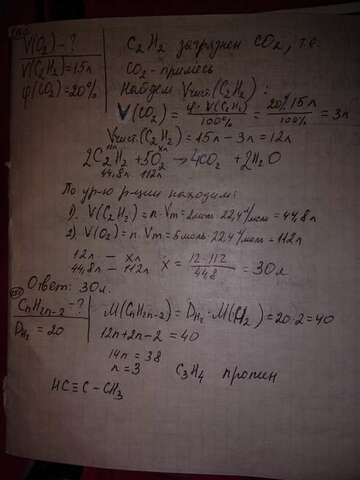 V(O₂) - ?
V(C₂H₂) = 15л
φ(CO₂) = 20%
C₂H₂ загрязнен CO₂, т.е.
CO₂ - примесь
Найдем Vчист.(C₂H₂):
V(CO₂) = φ·V(C₂H₂)/100% = 20%·15л/100% = 3л
Vчист.(C₂H₂) = 15л - 3л = 12л
12л xл
2C₂H₂ + 5O₂ → 4CO₂ + 2H₂O
44,8л 112л
По ур-ю р-ции находим:
1). V(C₂H₂) = n·Vm = 2моль·22,4л/моль = 44,8л
2). V(O₂) = n·Vm = 5моль·22,4л/моль = 112л
12л — xл
44,8л — 112л
x = 12·112/44,8 = 30л
Ответ: 30л.
CnH2n-2 - ?
DH₂ = 20
M(CnH2n-2) = DH₂·M(H₂) = 20·2 = 40
12n+2n-2 = 40
14n = 38
n = 3
C₃H₄ пропин
HC≡C-CH₃